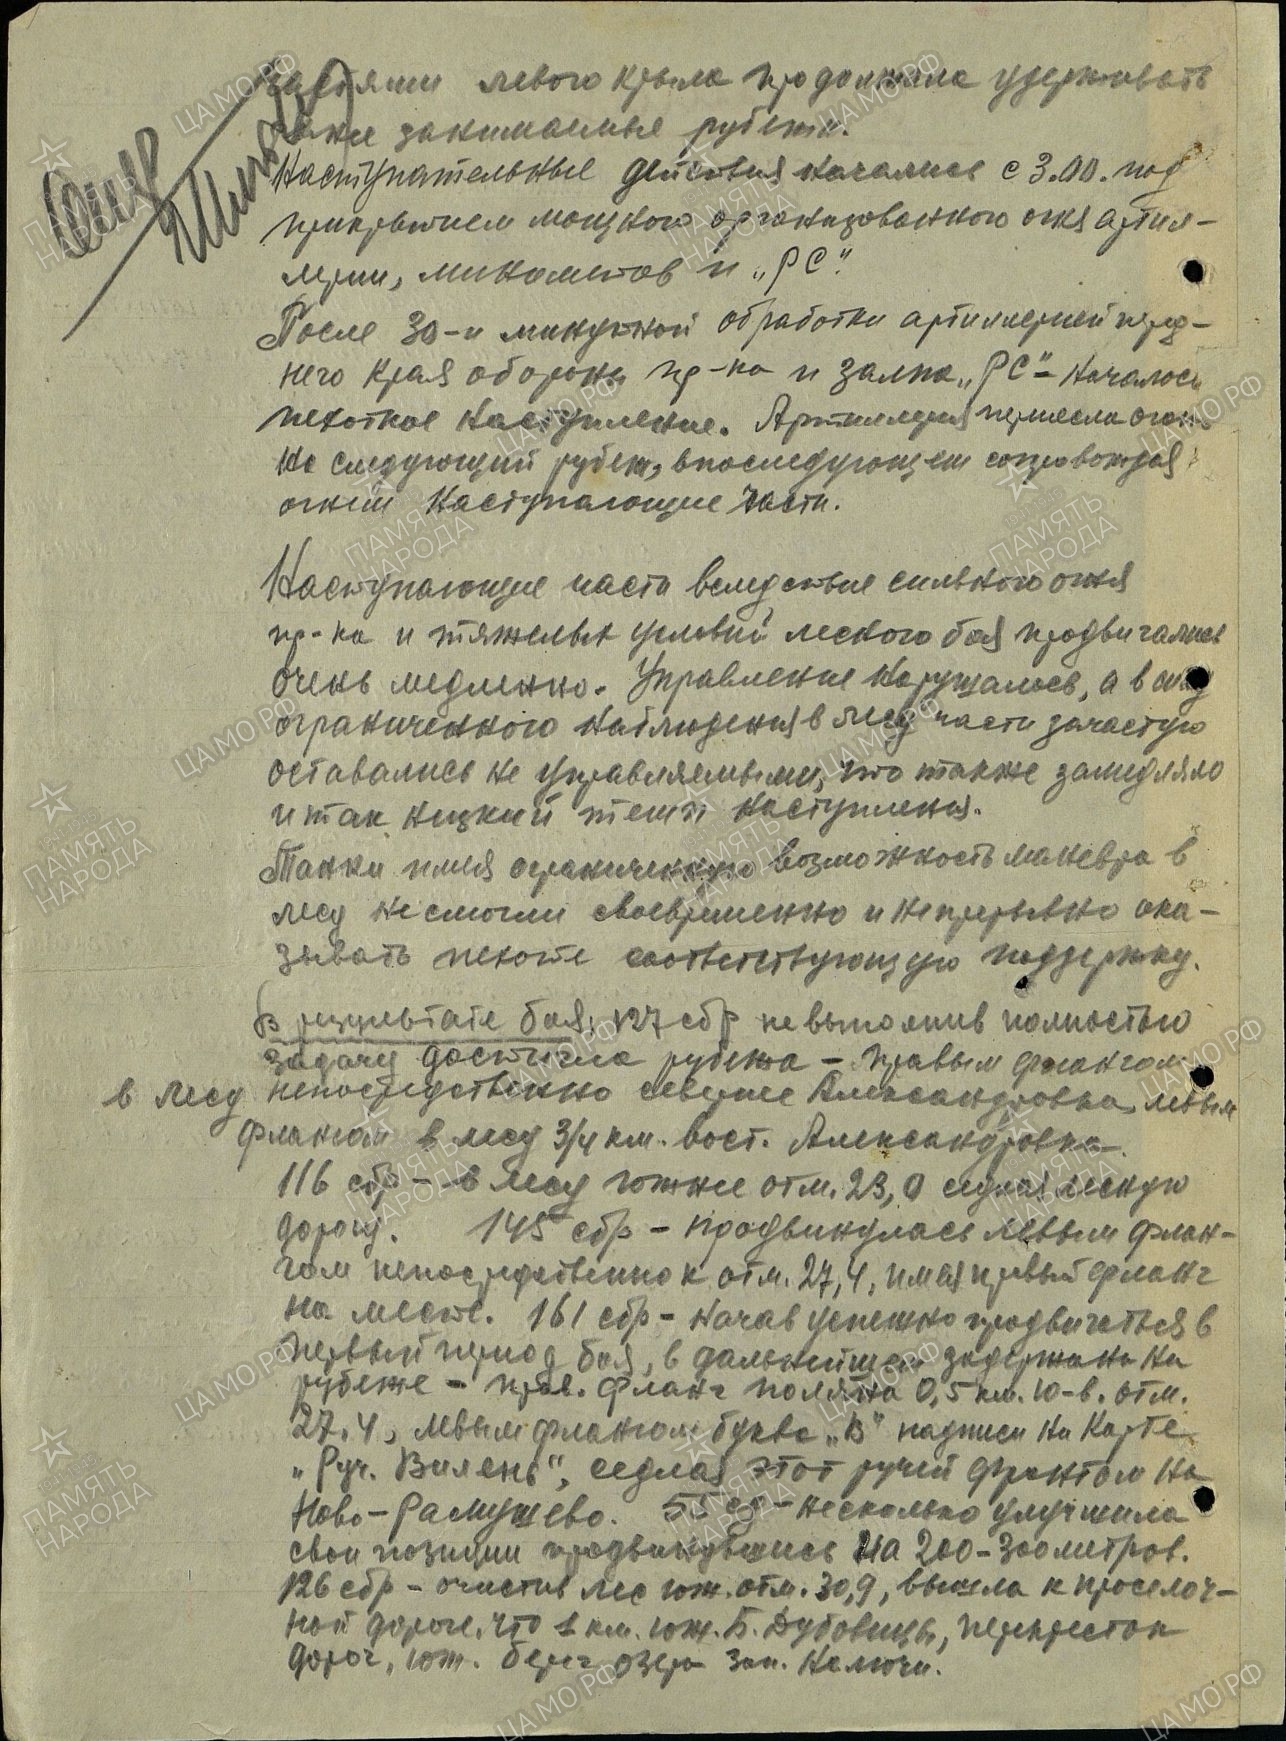 частями левого крыла продолжала удерживать
ранее занимаемые рубежи.
Наступательные действия начались с 3.00. под
прикрытием мощного организованного огня артил-
лерии, минометов и „РС".
После 30-и минутной обработки артиллерией перед-
него края обороны пр-ка и залпа „РС" - началось
пехотное наступление. Артиллерия перенесла огонь
на следующий рубеж, впоследующем сопровождая
огнем наступающие части.
Наступающие части вследствие сильного огня
пр-ка и тяжелых условий лесного боя продвигались
очень медленно. Управление нарушалось, а в силу
ограниченного наблюдения в лесу части зачастую
оставались не управляемыми, что также замедляло
и так низкий темп наступления.
Танки имея ограниченную возможность маневра в
лесу не смогли своевременно и непрерывно ока-
зывать пехоте соответствующую поддержку.
В результате боя: 127 сбр не выполнив полностью
задачу достигла рубежа - правым флангом
в лесу непосредственно севернее Александровка, левым
флангом в лесу 3/4 км. вост. Александровка.
116 сбр - в лесу южнее отм. 23,0 седлая лесную
дорогу. 145 сбр - продвинулась левым флан-
гом непосредственно к отм. 27,4, имея правый фланг
на месте. 161 сбр - начав успешно продвигаться в
первый период боя, в дальнейшем задержана на
рубеже - прав. фланг поляна 0,5 км. ю-в. отм.
27,4, левым флангом буква „В" надписи на карте
„Руч. Вилень", седлая этот ручей фронтом на
Ново-Рамушево. 55 сд - несколько улучшила
свои позиции продвинувшись на 200-300 метров.
126 сбр - очистив лес юж. отм. 30,9, вышла к проселоч-
ной дороге, что 1 км. юж. Б. Дубовицы, перекресток
дорог, юж. берег озера зап. Калючи.
ЦАМО РФ
ПАМЯТЬ
НАРОДА